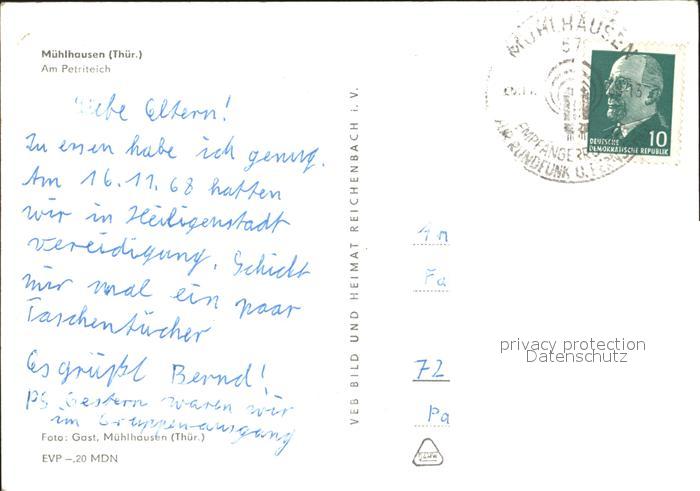 Mühlhausen (Thür.)
Am Petriteich
Liebe Eltern!
Zu essen habe ich genug.
Am 16.11.68 hatten
wir in Heiligenstadt
vereidigung. Schickt
mir mal ein paar
Taschentücher
Es grüßt Bernd!
PS Gestern waren wir
im Gruppenausgang
Foto: Gast, Mühlhausen (Thür.)
EVP –,20 MDN
VEB BILD UND HEIMAT REICHENBACH i. V.
MÜHLHAUSEN
57
EMPFÄNGER
RUNDFUNK U.
10
DEUTSCHE
DEMOKRATISCHE REPUBLIK
An
Fa
72
Pa
privacy protection
Datenschutz